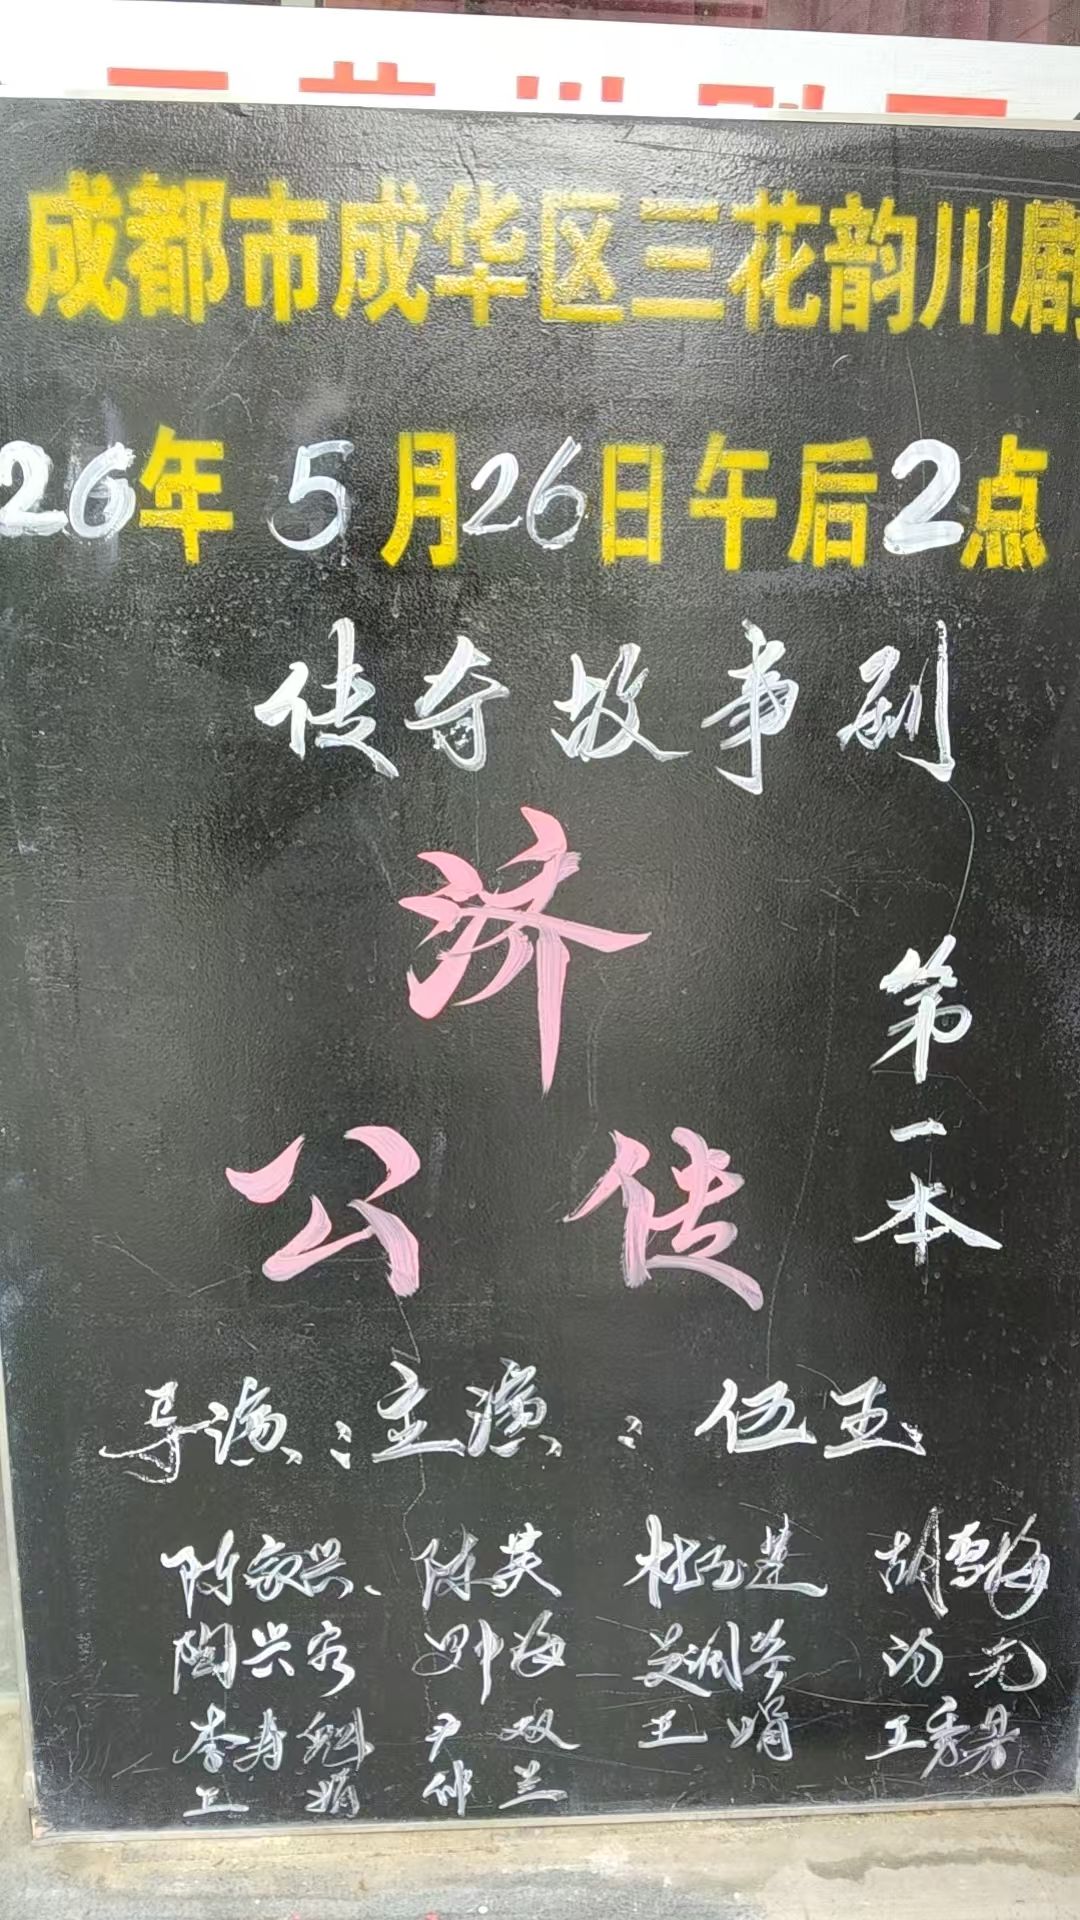 成都市成华区三花韵川剧
26年5月26日午后2点
传奇故事剧
济
公传
第一本
导演:主演:伍玉
陈家兴、 陈英 杜玉莲 胡雪梅
陶兴容 海 汤元
李寿魁 尹双 王娟 王秀丹
娟 仲兰